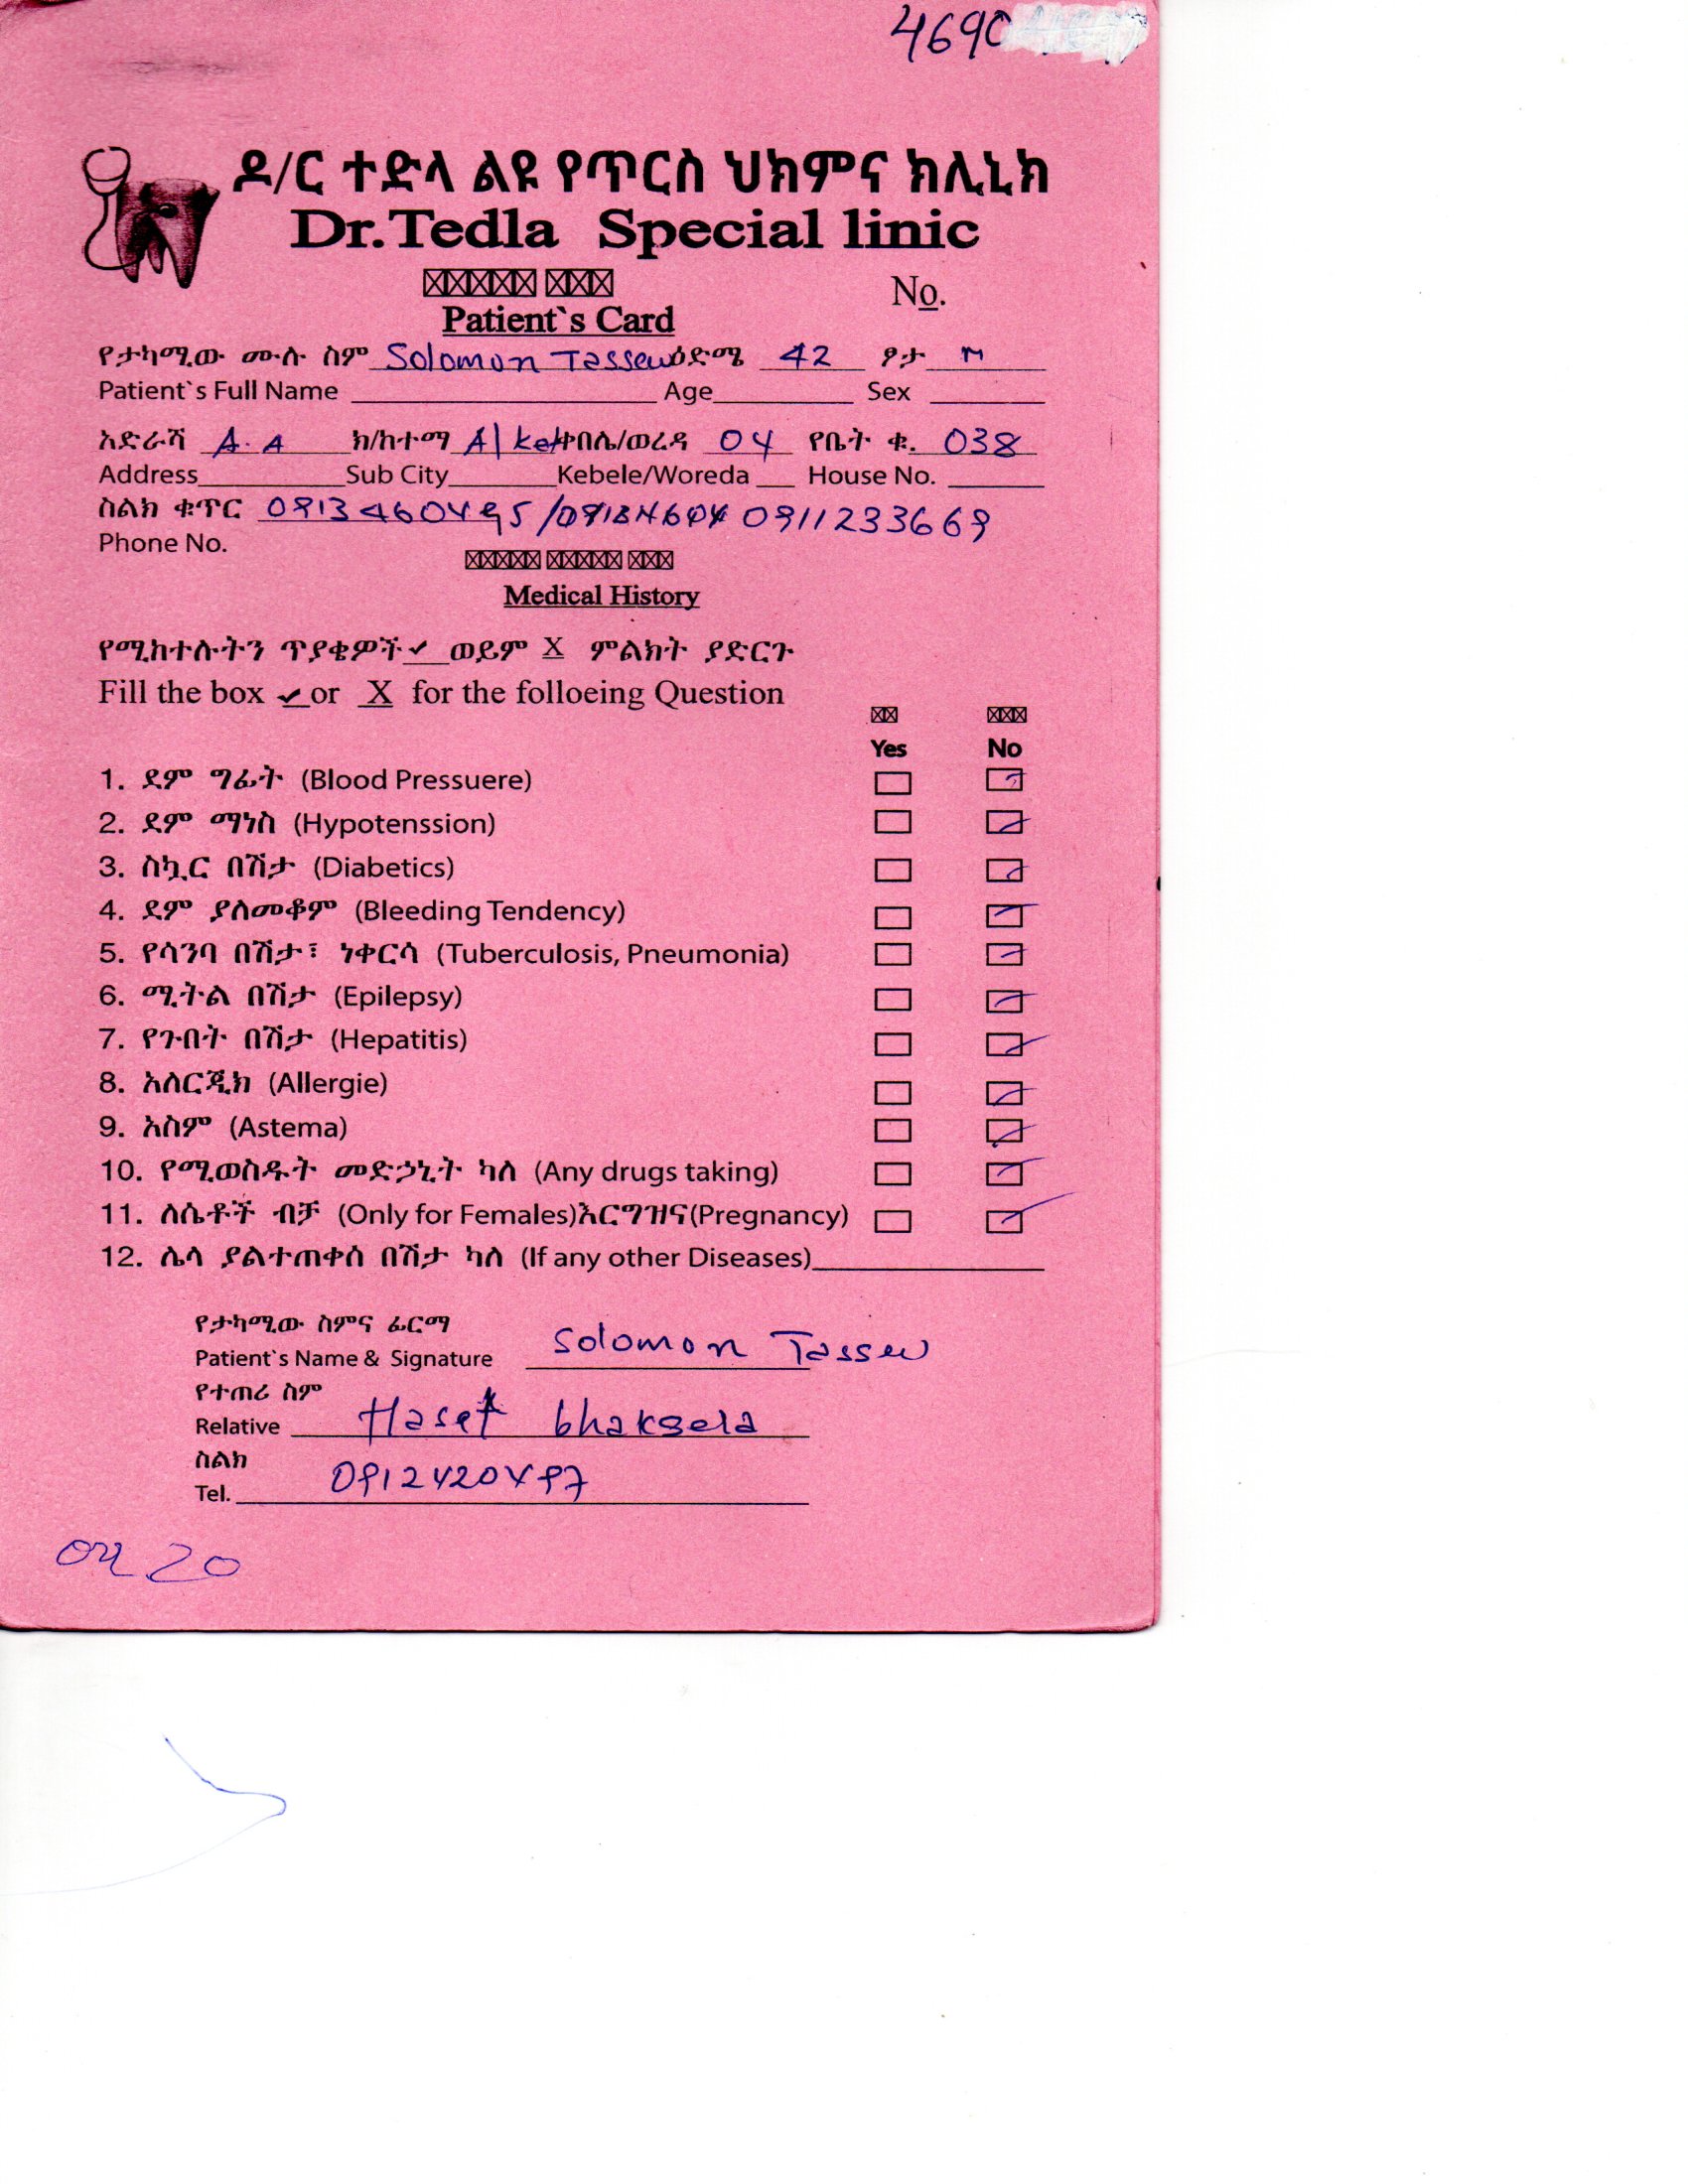 4690
ዶ/ር ተድላ ልዩ የጥርስ ህክምና ክሊኒክ
Dr.Tedla Special linic
No.
Patient`s Card
የታካሚው ሙሉ ስም Solomon Tassew ዕድሜ 42 ፆታ M
Patient`s Full Name Age Sex
አድራሻ A.A ክ/ከተማ A/ket ቀበሌ/ወረዳ 04 የቤት ቁ. 038
Address Sub City Kebele/Woreda House No.
ስልክ ቁጥር 0911233669
Phone No.
Medical History
የሚከተሉትን ጥያቄዎች ✓ ወይም X ምልክት ያድርጉ
Fill the box ✓ or X for the folloeing Question
Yes No
1. ደም ግፊት (Blood Pressuere)
2. ደም ማነስ (Hypotenssion)
3. ስኳር በሽታ (Diabetics)
4. ደም ያለመቆም (Bleeding Tendency)
5. የሳንባ በሽታ፣ ነቀርሳ (Tuberculosis, Pneumonia)
6. ሚትል በሽታ (Epilepsy)
7. የጉበት በሽታ (Hepatitis)
8. አለርጂክ (Allergie)
9. አስም (Astema)
10. የሚወስዱት መድኃኒት ካለ (Any drugs taking)
11. ለሴቶች ብቻ (Only for Females)እርግዝና(Pregnancy)
12. ሌላ ያልተጠቀሰ በሽታ ካለ (If any other Diseases)
የታካሚው ስምና ፊርማ
Patient`s Name & Signature Solomon Tassew
የተጠሪ ስም
Relative
ስልክ
Tel. 0912420497